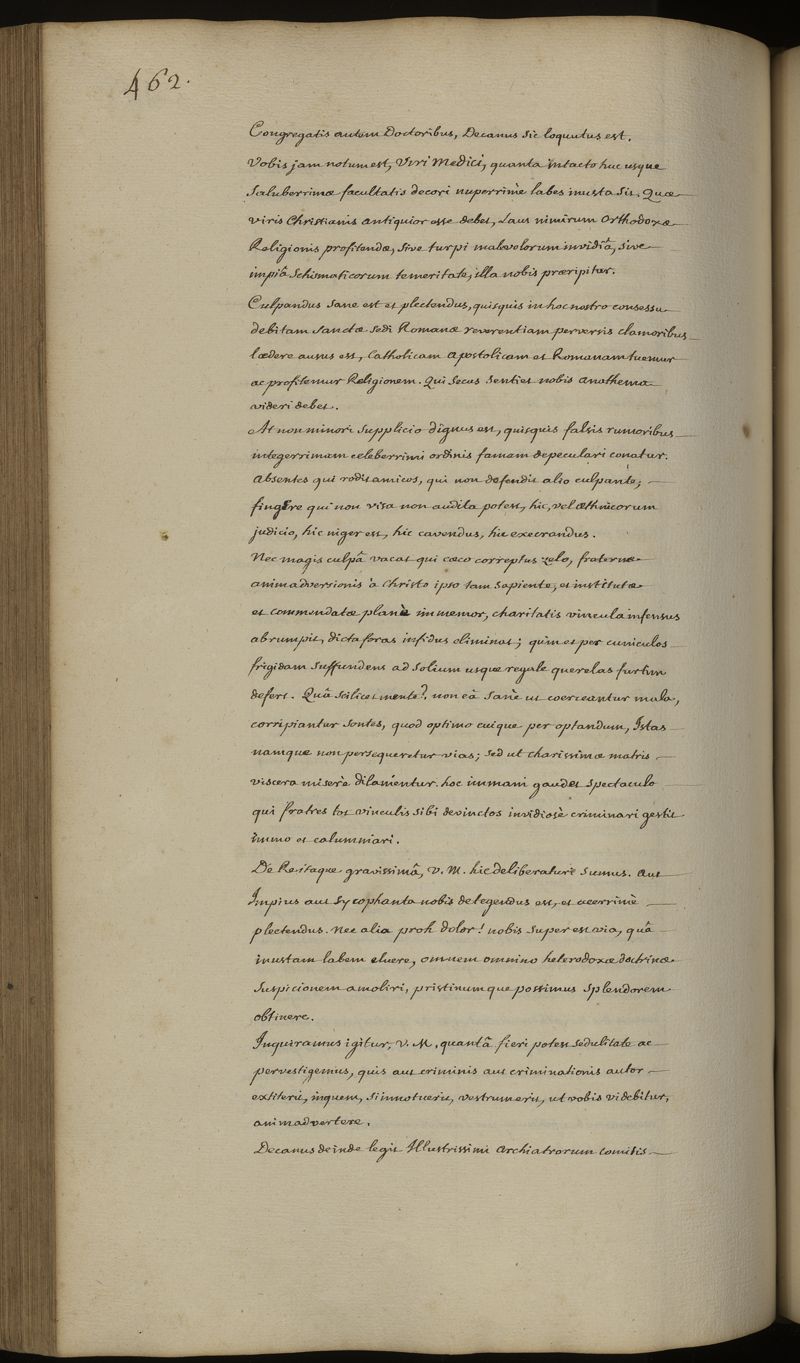 462.
Congregatis autem Doctoribus, Decanus sic loquutus est.
Vobis jam notum est, Viri Medici, quanta intacto huc usque
Saluberrimæ facultatis decori nuperrimè labes inusta sit. Quæ
viris Christianis antiquior esse debet, Laus nimirum Orthodoxæ
Religionis profitendæ, sive turpi malevolorum invidiâ, sive
impiâ Schismaticorum temeritate, illa nobis præripitur.
Culpandus sane est et plectendus, quisquis in hoc nostro consessu
debitam sanctæ sedi Romanæ reverentiam perversis clamoribus
lædere ausus est, Catholicam apostolicam et Romanam tuemur
ac profitemur Religionem. Qui secus sentiet nobis anathema
videri debet.
At non minori supplicio dignus est, quisquis falsis rumoribus
integerrimam celeberrimi ordinis famam depeculari conatur.
Absentes qui rodit amicos, qui non defendit alio culpante;
fingere qui non visa non audita potest, hic, vel æthnicorum
judicio, hic niger est, hic cavendus, hic execrandus.
Nec magis culpâ vacat qui cæco correptus zelo, fraternæ
animadversionis à Christo ipso tam sapienter, et institutæ
et commendatæ planè immemor, charitatis vincula infensus
abrumpit, dicta foras infidus eliminat; quin et per cuniculos
frigidam suffundens ad solium usque regale querelas furtim
defert. Quâ scilicet mente? non eâ sanè ut coerceantur mala,
corripiantur sontes, quod optimo cuique per optandum, Istas
namque non persequeretur vias; sed ut charissimæ matris
viscera miserè dilanientur. hoc immani gaudet spectaculo
qui fratres tot vinculis sibi devinctos invidiosè criminari gestit
immo et calumniari.
De Re itaque gravissimâ, V. M. hic deliberaturi sumus. aut
Impius aut sycophanta nobis detegendus est, et acerrimè
plectendus. Nec alia proh dolor! nobis super est via, quâ
inustam labem eluere, omnem omnino heterodoxæ doctrinæ
suspicionem amoliri, pristinumque possimus splendorem
obtinere.
Inquiramus igitur, V. M, quantâ fieri potest sedulitate ac
pervestigemus, quis aut criminis aut criminationis autor
extiterit, inquem, si innotuerit, vestrum erit, ut vobis videbitur,
animadvertere.
Decanus deinde legit Illustrissimi archiatrorum comitis